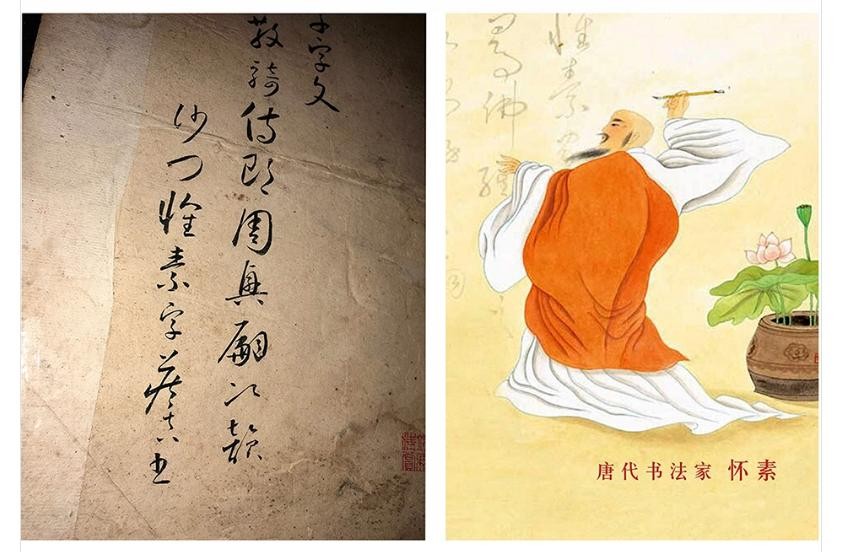 千字文
散騎侍郎周興嗣次韻
沙門懷素字藏真書
唐代书法家 怀素